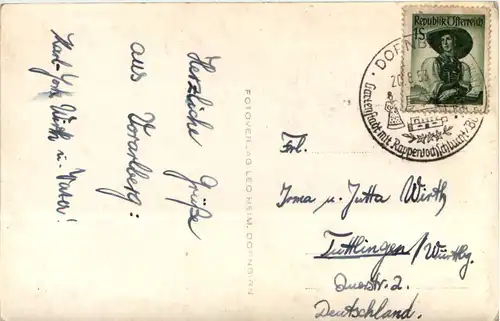 Herzliche Grüße
aus Vorarlberg:
Wirth u. Vater!
FOTOVERLAG LEO HEIM, DORNBIRN
Republik Österreich
1S
DORNB
20.8.53
Gartenstadt mit Rappenlochschlucht
Frl.
Irma u. Jutta Wirth
Tuttlingen/Württbg.
Querstr. 2.
Deutschland.